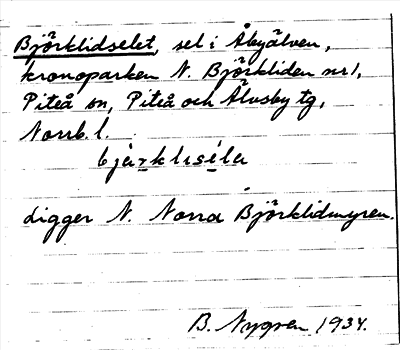 Björklidselet, sel i Åbyälven,
kronoparken N. Björkliden nr 1,
Piteå sn, Piteå och Älvsby tg,
Norrb. l.
bjärklıséla
Ligger N. Norra Björklidmyren.
B. Nygren 1934.